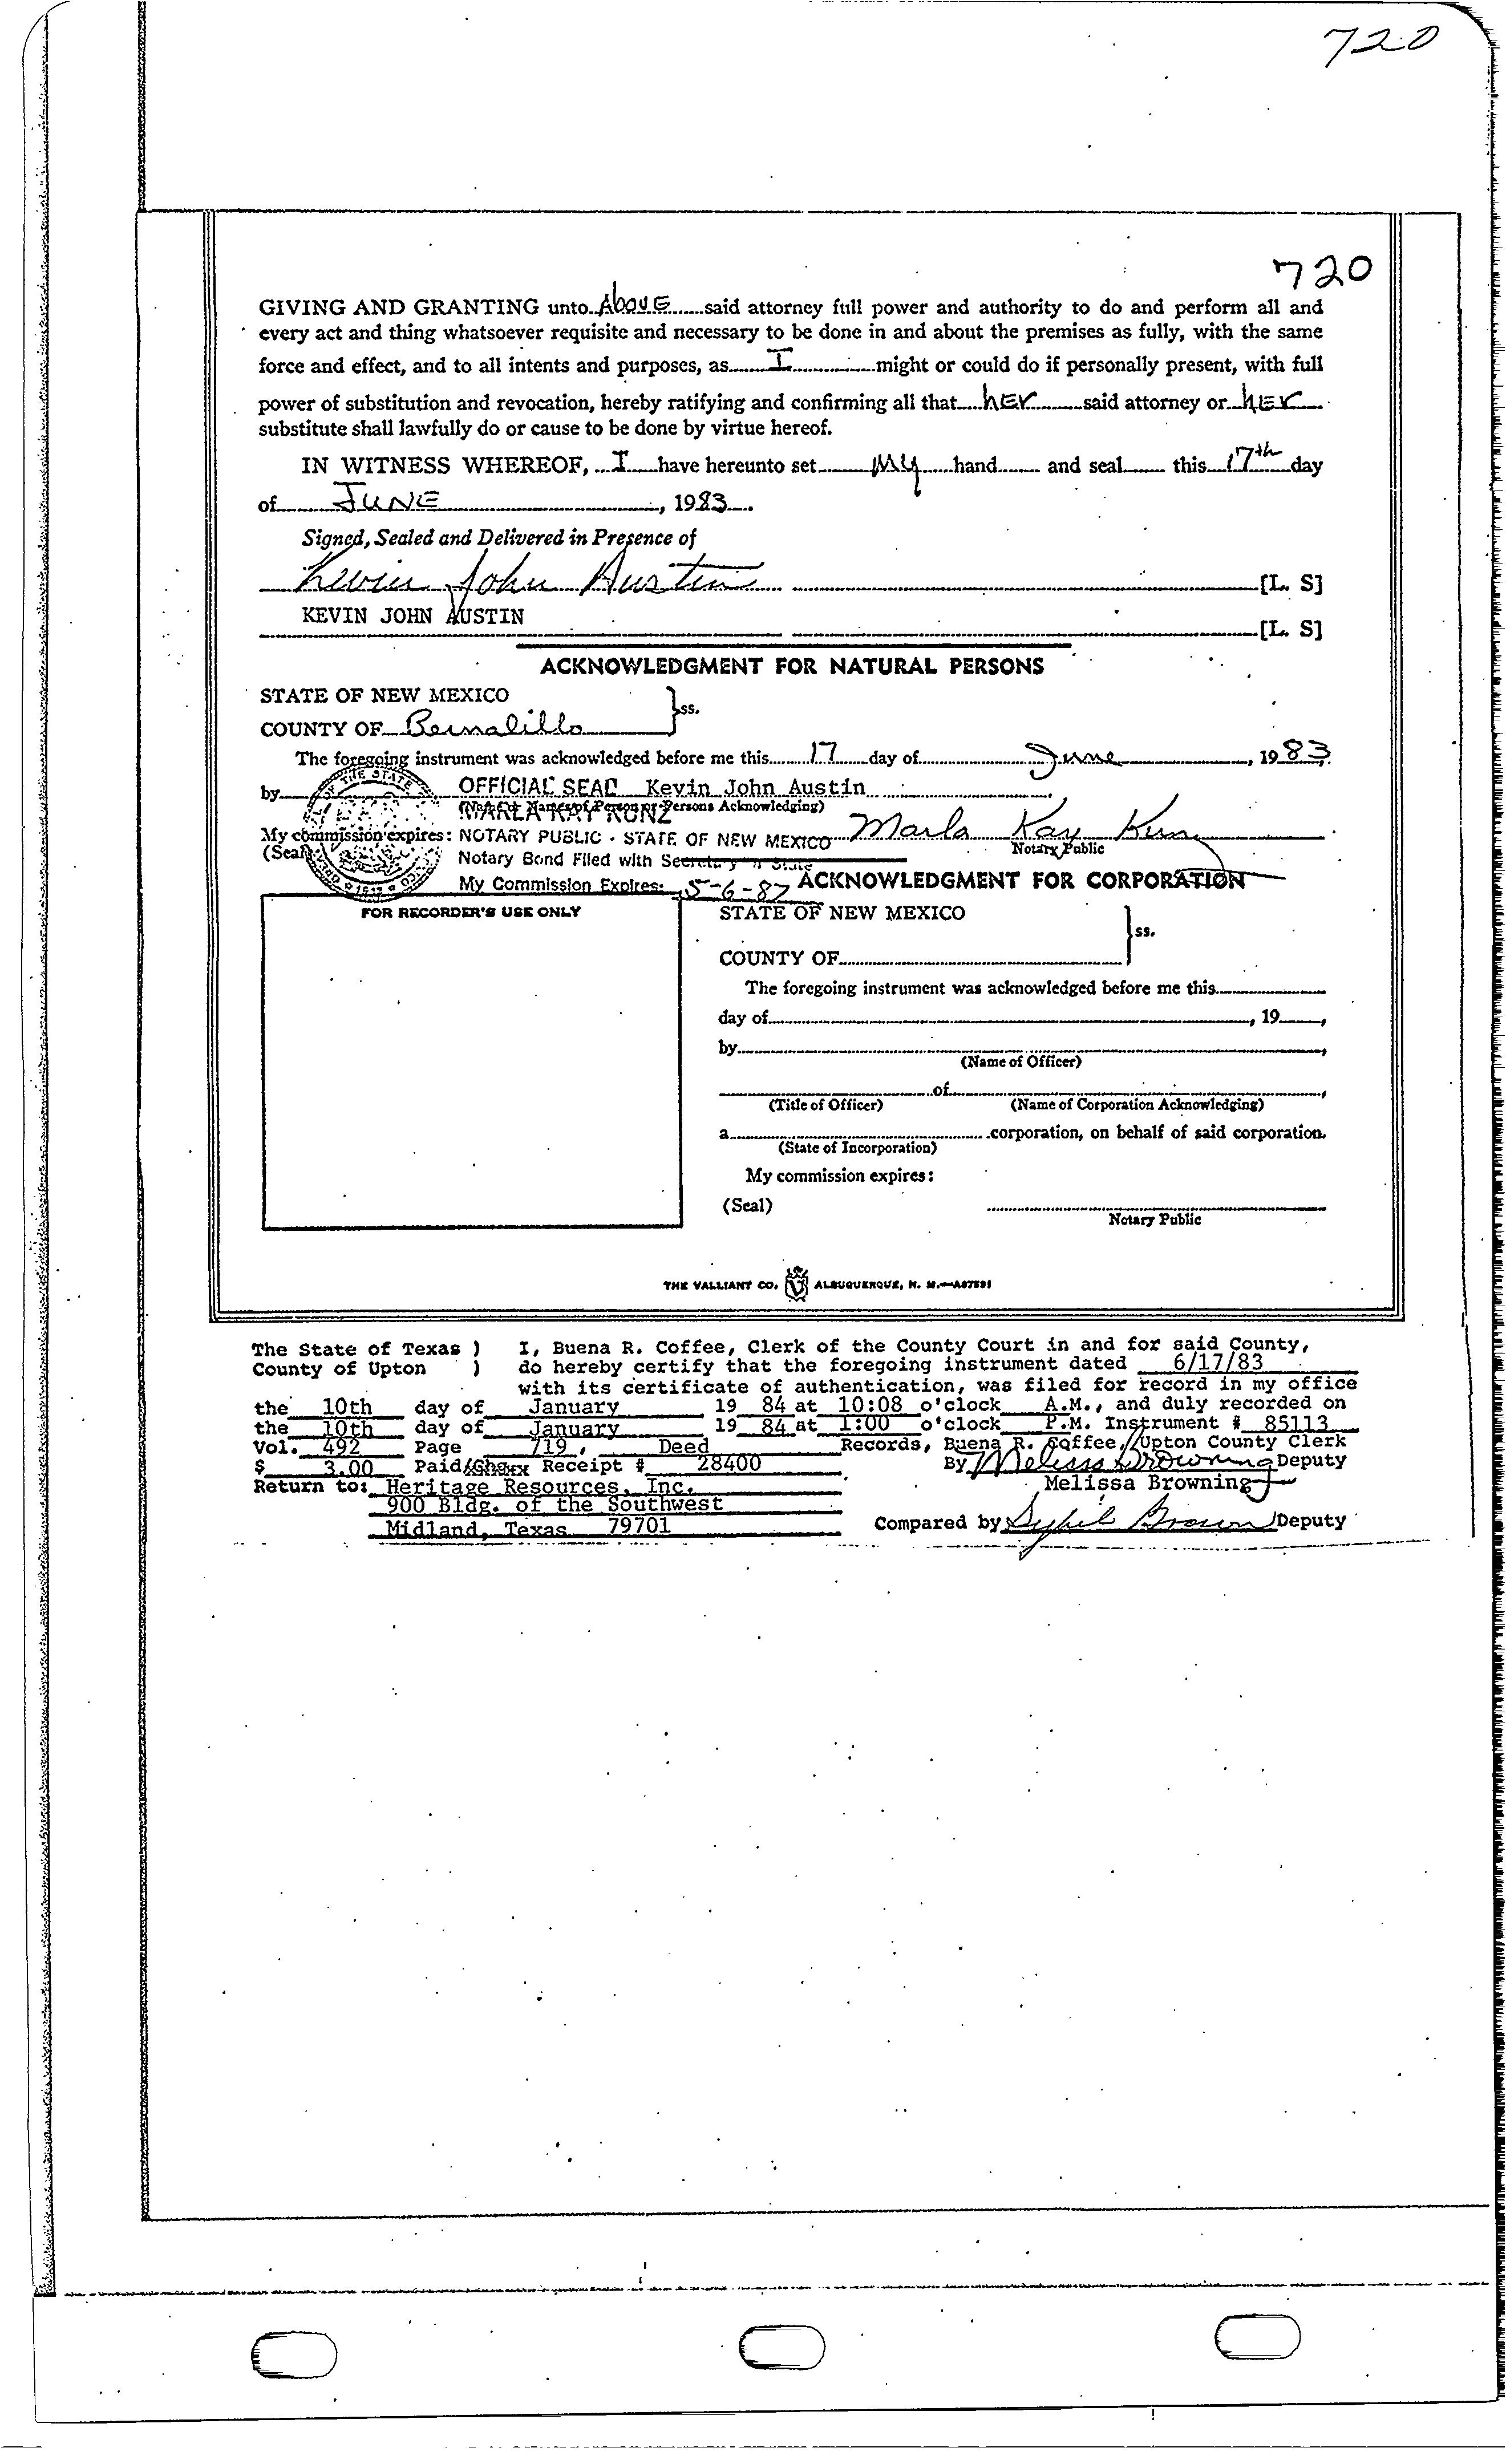 720
720
GIVING AND GRANTING unto Above said attorney full power and authority to do and perform all and
every act and thing whatsoever requisite and necessary to be done in and about the premises as fully, with the same
force and effect, and to all intents and purposes, as I might or could do if personally present, with full
power of substitution and revocation, hereby ratifying and confirming all that her said attorney or her
substitute shall lawfully do or cause to be done by virtue hereof.
IN WITNESS WHEREOF, I have hereunto set My hand and seal this 17th day
of JUNE, 1983.
Signed, Sealed and Delivered in Presence of
Kevin John Austin [L. S]
KEVIN JOHN AUSTIN
[L. S]
ACKNOWLEDGMENT FOR NATURAL PERSONS
STATE OF NEW MEXICO
ss.
COUNTY OF Bernalillo
The foregoing instrument was acknowledged before me this 17 day of June, 1983,
by OFFICIAL SEAL Kevin John Austin
(Name or Names of Person or Persons Acknowledging)
MARLA KAY KUNZ
My commission expires: NOTARY PUBLIC - STATE OF NEW MEXICO Marla Kay Kunz
Notary Public
(Seal) Notary Bond Filed with Secretary of State
My Commission Expires: 5-6-87 ACKNOWLEDGMENT FOR CORPORATION
FOR RECORDER'S USE ONLY
STATE OF NEW MEXICO
ss.
COUNTY OF
The foregoing instrument was acknowledged before me this
day of , 19 ,
by ,
(Name of Officer)
of ,
(Title of Officer) (Name of Corporation Acknowledging)
a corporation, on behalf of said corporation.
(State of Incorporation)
My commission expires:
(Seal)
Notary Public
THE VALLIANT CO. V ALBUQUERQUE, N. M.—A87591
The State of Texas ) I, Buena R. Coffee, Clerk of the County Court in and for said County,
County of Upton ) do hereby certify that the foregoing instrument dated 6/17/83
with its certificate of authentication, was filed for record in my office
the 10th day of January 19 84 at 10:08 o'clock A.M., and duly recorded on
the 10th day of January 19 84 at 1:00 o'clock P.M. Instrument # 85113
Vol. 492 Page 719, Deed Records, Buena R. Coffee, Upton County Clerk
$ 3.00 Paid/Chgxx Receipt # 28400 By Melissa Browning Deputy
Return to: Heritage Resources, Inc. Melissa Browning
900 Bldg. of the Southwest
Midland, Texas 79701 Compared by Sybil Brown Deputy